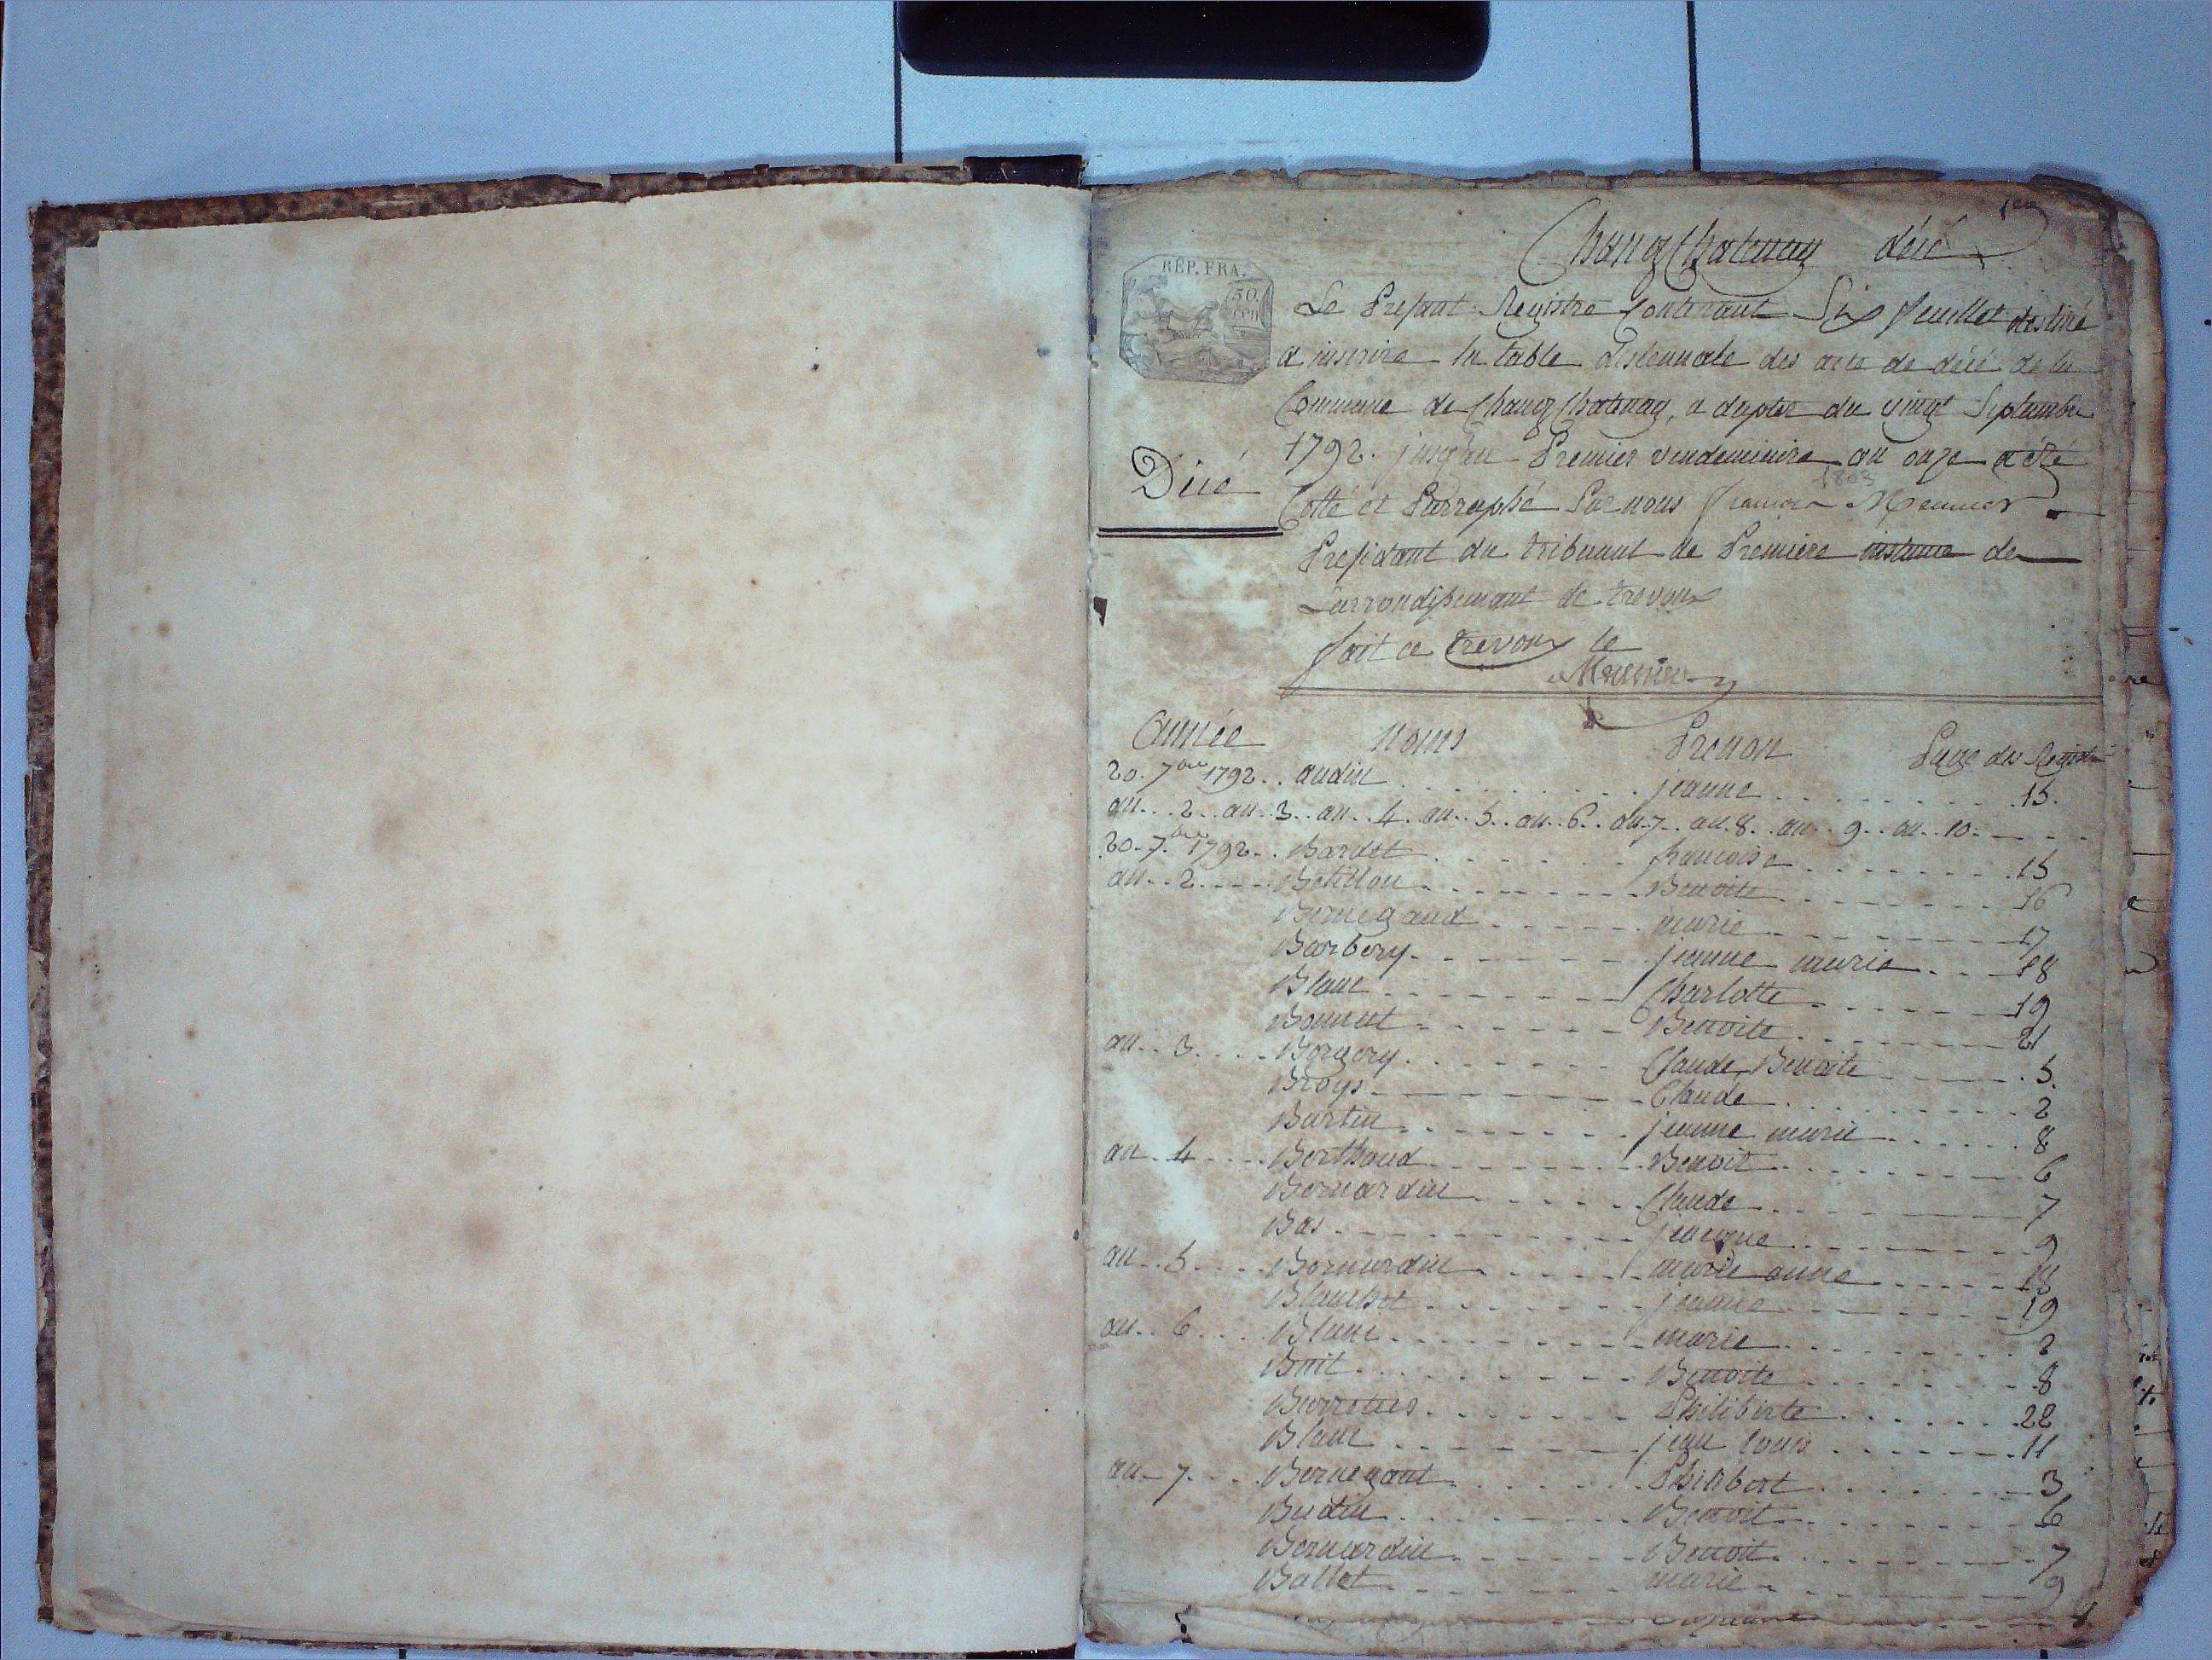 1er
Chanoz Chatenay décé
RÉP. FRA.
50.
cen
Le Present Registre Contenant Six feuillet destiné
a inscrire la table desennale des acte de décé de la
Commune de Chanoz Chatenay, a dapter du vingt Septembre
1792. jusqu'au Premier vendemiaire an onze a été
1803
Décé
Cotté et Parraphé Par nous françois Meunier
Presidant du tribunal de Premiere instance de
Larrondissemant de trevoux
fait a trevoux le
Meunier
Année noms Prenon Page des Registre
20. 7bre 1792. audin jeanne 15.
an 2. an 3. an 4. an 5. an 6. an 7. an 8. an 9. an 10.
20. 7bre 1792. Bardet francoise 15
an 2 Betillon Benoite 16
Bernegaud marie 17
Barbery jeanne marie 18
Blanc Charlotte 19
Bonnet Benoite 21
an 3 Borgery Claude Benoite 5.
Broys Claude 2
Bartin jeanne marie 8
an 4 Berthaud Benoit 6
Bernardin Claude 7
Bas 9
an 5 Bernardin marie anne 18
Blanchet jeanne 19
an 6 Blanc marie 2
Benoite 8
Philiberte 22
Blanc jean louis 11
an 7 Bernegaut Philibert 3
Budin Benoit 6
Bernardin Benoit 7
Ballet marie 9